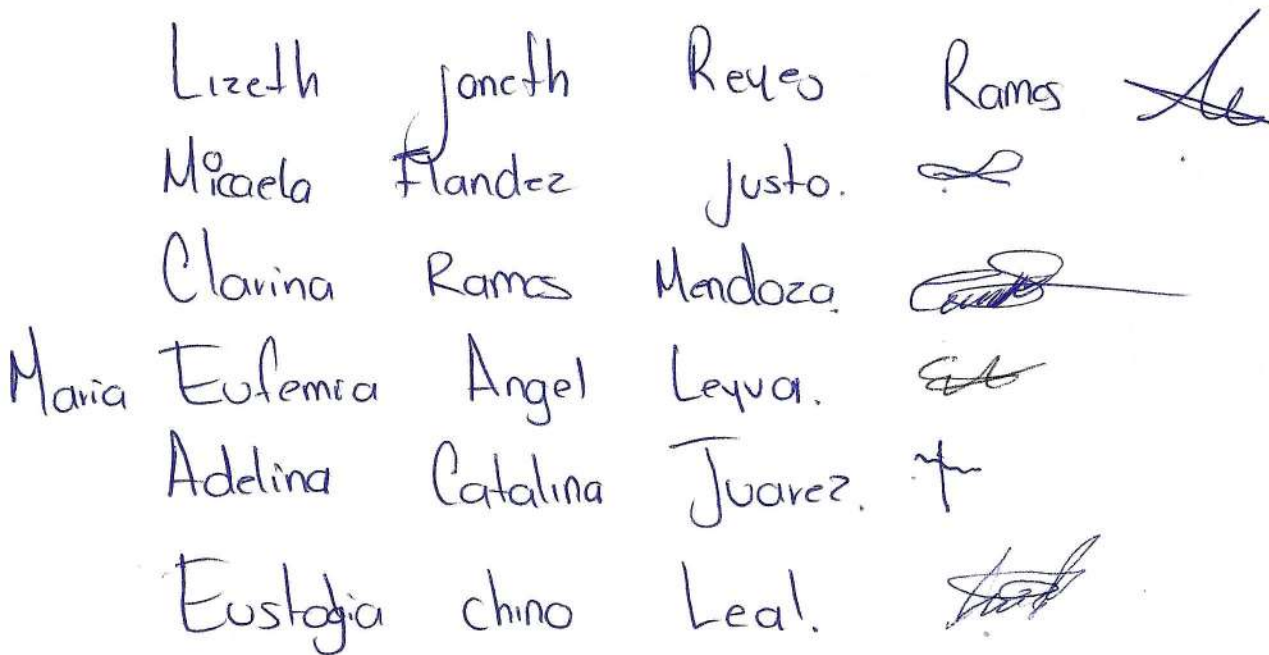 Lizeth Janeth Reyes Ramos
Micaela Flandez Justo.
Clarina Ramos Mendoza.
Maria Eufemia Angel Leyva.
Adelina Catalina Juarez.
Eustogia chino Leal.